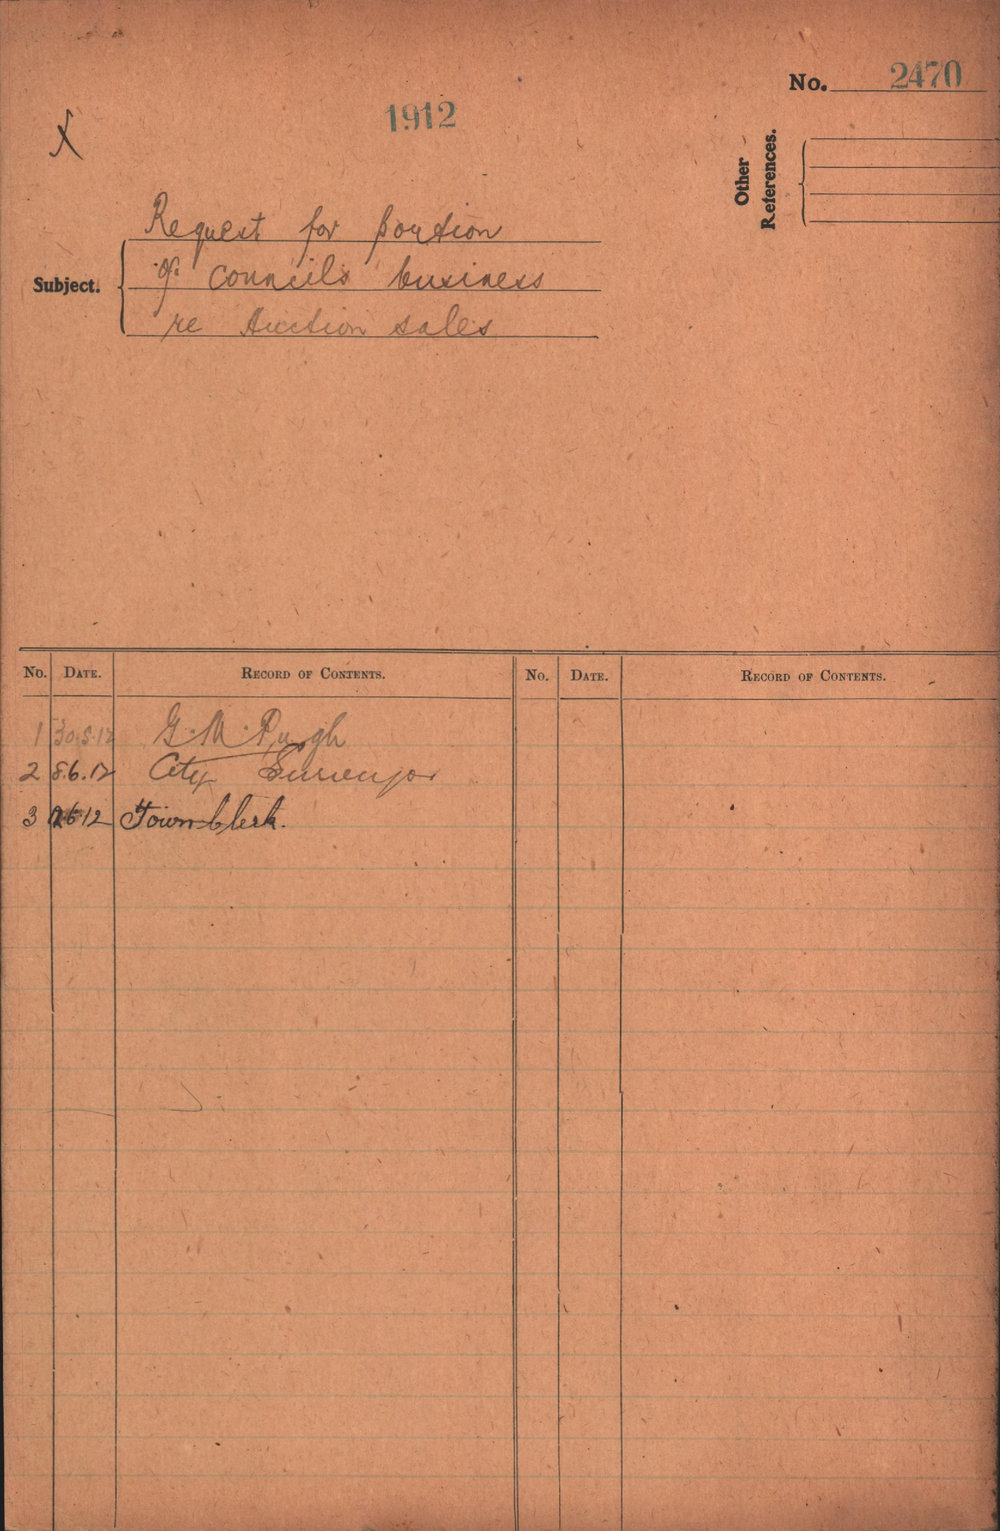 No. 2470
1912
X
Other
References.
Request for portion
of Council's business
re Auction sales
Subject.
No. DATE. RECORD OF CONTENTS. No. DATE. RECORD OF CONTENTS.
1 30.5.12 G. M. Pugh
2 8.6.12 City Surveyor
3 6 12 Town Clerk.